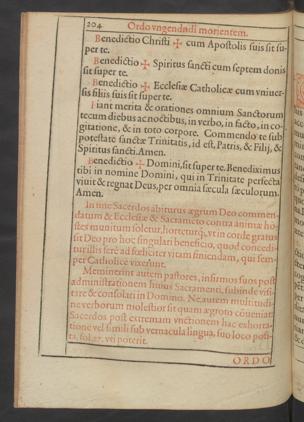 204 Ordo vngendũdi morientem.
Benedictio Christi ✠ cum Apostolis suis sit super te.
Benedictio ✠ Spiritus sancti cum septem donis
sit super te.
Benedictio ✠ Ecclesiæ Catholicæ cum vniuer-
sis filiis suis sit super te.
Fiant merita & orationes omnium Sanctorum
tecum diebus ac noctibus, in verbo, in facto, in co-
gitatione, & in toto corpore. Commendo te sub
potestate sanctæ Trinitatis, id est, Patris, & Filij, &
Spiritus sancti. Amen.
Benedictio ✠ Domini, sit super te. Benediximus
tibi in nomine Domini, qui in Trinitate perfecta
viuit & regnat Deus, per omnia sæcula sæculorum.
Amen.
In fine Sacerdos abiturus ægrum Deo commen-
datum & Ecclesiæ & Sacramẽto contra animæ ho-
stes munitum soletur, horteturq́, vt in corde gratus
sit Deo pro hoc singulari beneficio, quod concedi-
tur illis ferè ad fœliciter vitam finiendam, qui sem-
per Catholicè vixerunt.
Meminerint autem pastores, infirmos suos post
administrationem huius Sacramenti, subinde visi-
tare & consolari in Domino. Ne autem multitudi-
ne verborum molestior sit quàm ægroto cõueniat
Sacerdos post extremam vnctionem hac exhorta-
tione vel simili sub vernacula lingua, suo loco posi-
ta, fol. vti poterit.
ORDO